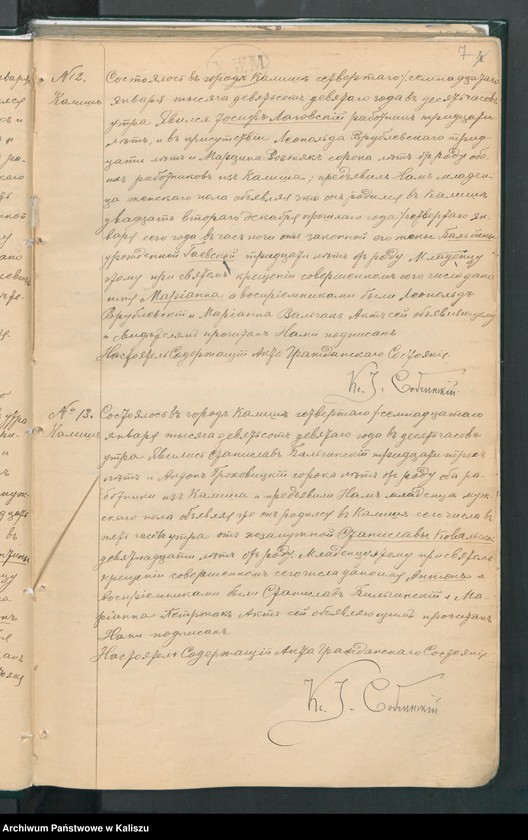 7
№ 12.
Калишъ
Состоялось въ городѣ Калишѣ четвертаго / семнадцатаго
января тысяча девятьсотъ девятаго года въ десять часовъ
утра Явился Іосифъ Лаговскій работникъ тридцати
лѣтъ, и въ присутствіи Леопольда Врублевскаго трид-
цати лѣтъ и Марцина Возняк сорока лѣтъ отъ роду обо-
ихъ работниковъ изъ Калиша; предъявилъ Намъ младен-
ца женскаго пола объявляя что онъ родился въ Калишѣ
двадцать втораго декабря прошлаго года / четвертаго ян-
варя сего года въ часъ ночи отъ законной его жены
урожденной Гаевской тридцати лѣтъ отъ роду Младенцу
этому при святомъ крещеніи совершенномъ сего числа дано
имя Маріанна а воспріемниками были Леопольдъ
Врублевскій и Маріанна Актъ сей объявляющему
и свидѣтелямъ прочитанъ Нами подписанъ
Настоятель Содержащій Акты Гражданскаго Состоянія
Кс. І. Собчинскій
№ 13.
Калишъ
Состоялось въ городѣ Калишѣ четвертаго / семнадцатаго
января тысяча девятьсотъ девятаго года въ десять часовъ
утра Явились Станиславъ тридцати трехъ
лѣтъ и Антонъ Гроховицкій сорока лѣтъ отъ роду оба ра-
ботники изъ Калиша и предъявили Намъ младенца муж-
скаго пола объявляя что онъ родился въ Калишѣ сего числа въ
пять часовъ утра отъ незамужной Станиславы
девятнадцати лѣтъ отъ роду Младенцу этому при святомъ
крещеніи совершенномъ сего числа дано имя Антонъ а
воспріемниками были Станиславъ и Ма-
ріанна Актъ сей объявляющимъ прочитанъ
Нами подписанъ
Настоятель Содержащій Акты Гражданскаго Состоянія
Кс. І. Собчинскій
Archiwum Państwowe w Kaliszu